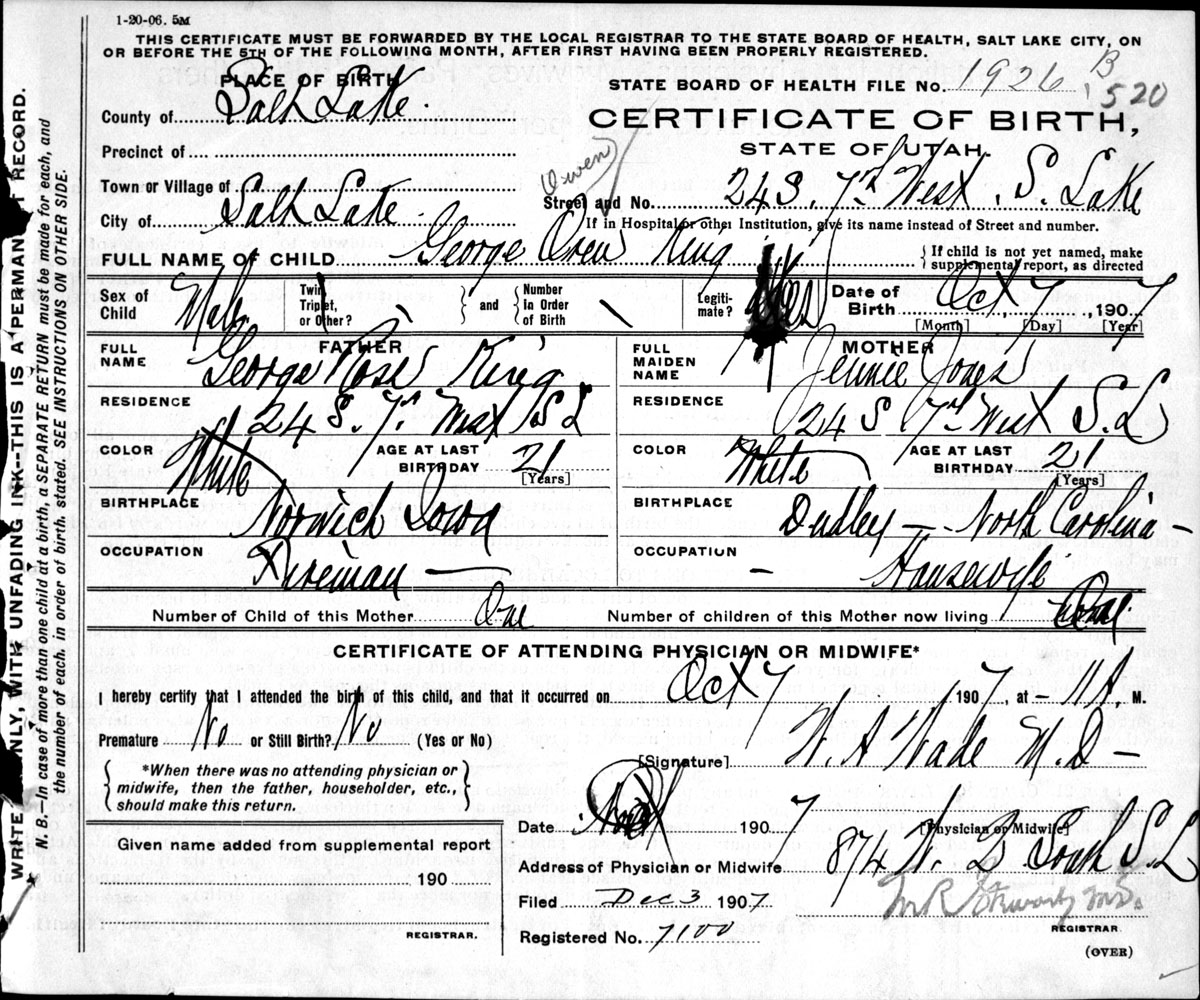 1-20-06. 5M
THIS CERTIFICATE MUST BE FORWARDED BY THE LOCAL REGISTRAR TO THE STATE BOARD OF HEALTH, SALT LAKE CITY, ON
OR BEFORE THE 5TH OF THE FOLLOWING MONTH, AFTER FIRST HAVING BEEN PROPERLY REGISTERED.
PLACE OF BIRTH
STATE BOARD OF HEALTH FILE No. 1926 B 520
County of Salt Lake.
CERTIFICATE OF BIRTH,
Precinct of
STATE OF UTAH
Town or Village of
Owen
Street and No. 24 S. 7th West. S. Lake
City of Salt Lake.
If in Hospital or other Institution, give its name instead of Street and number.
FULL NAME OF CHILD George Oren King
{If child is not yet named, make supplemental report, as directed
Sex of Child Male
Twin, Triplet, or Other?
} and {
Number in Order of Birth
Legiti-mate? Yes
Date of Birth Oct, 7, 1907
[Month] [Day] [Year]
FATHER
MOTHER
FULL NAME George Rose King
FULL MAIDEN NAME Jennie Jones
RESIDENCE 24 S. 7th West S L
RESIDENCE 24 S 7th West S. L
COLOR White AGE AT LAST BIRTHDAY 21 [Years]
COLOR White AGE AT LAST BIRTHDAY 21 [Years]
BIRTHPLACE Norwich Iowa
BIRTHPLACE Dudley - North Carolina -
OCCUPATION Fireman -
OCCUPATION - Housewife
Number of Child of this Mother One
Number of children of this Mother now living One
CERTIFICATE OF ATTENDING PHYSICIAN OR MIDWIFE*
I hereby certify that I attended the birth of this child, and that it occurred on Oct 7, 1907, at - 11 A. M.
Premature No or Still Birth? No (Yes or No)
[Signature] W. A Wade M. D -
*When there was no attending physician or
midwife, then the father, householder, etc.,
should make this return.
Date 1907
[Physician or Midwife]
Given name added from supplemental report
190
REGISTRAR.
Address of Physician or Midwife 874 W. So S. L
Filed Dec 3 1907
M R Stewart M.D.
REGISTRAR.
Registered No. 7100
(OVER)
WRITE PLAINLY, WITH UNFADING INK--THIS IS A PERMANENT RECORD.
N. B.—In case of more than one child at a birth, a SEPARATE RETURN must be made for each, and
the number of each, in order of birth, stated. SEE INSTRUCTIONS ON OTHER SIDE.